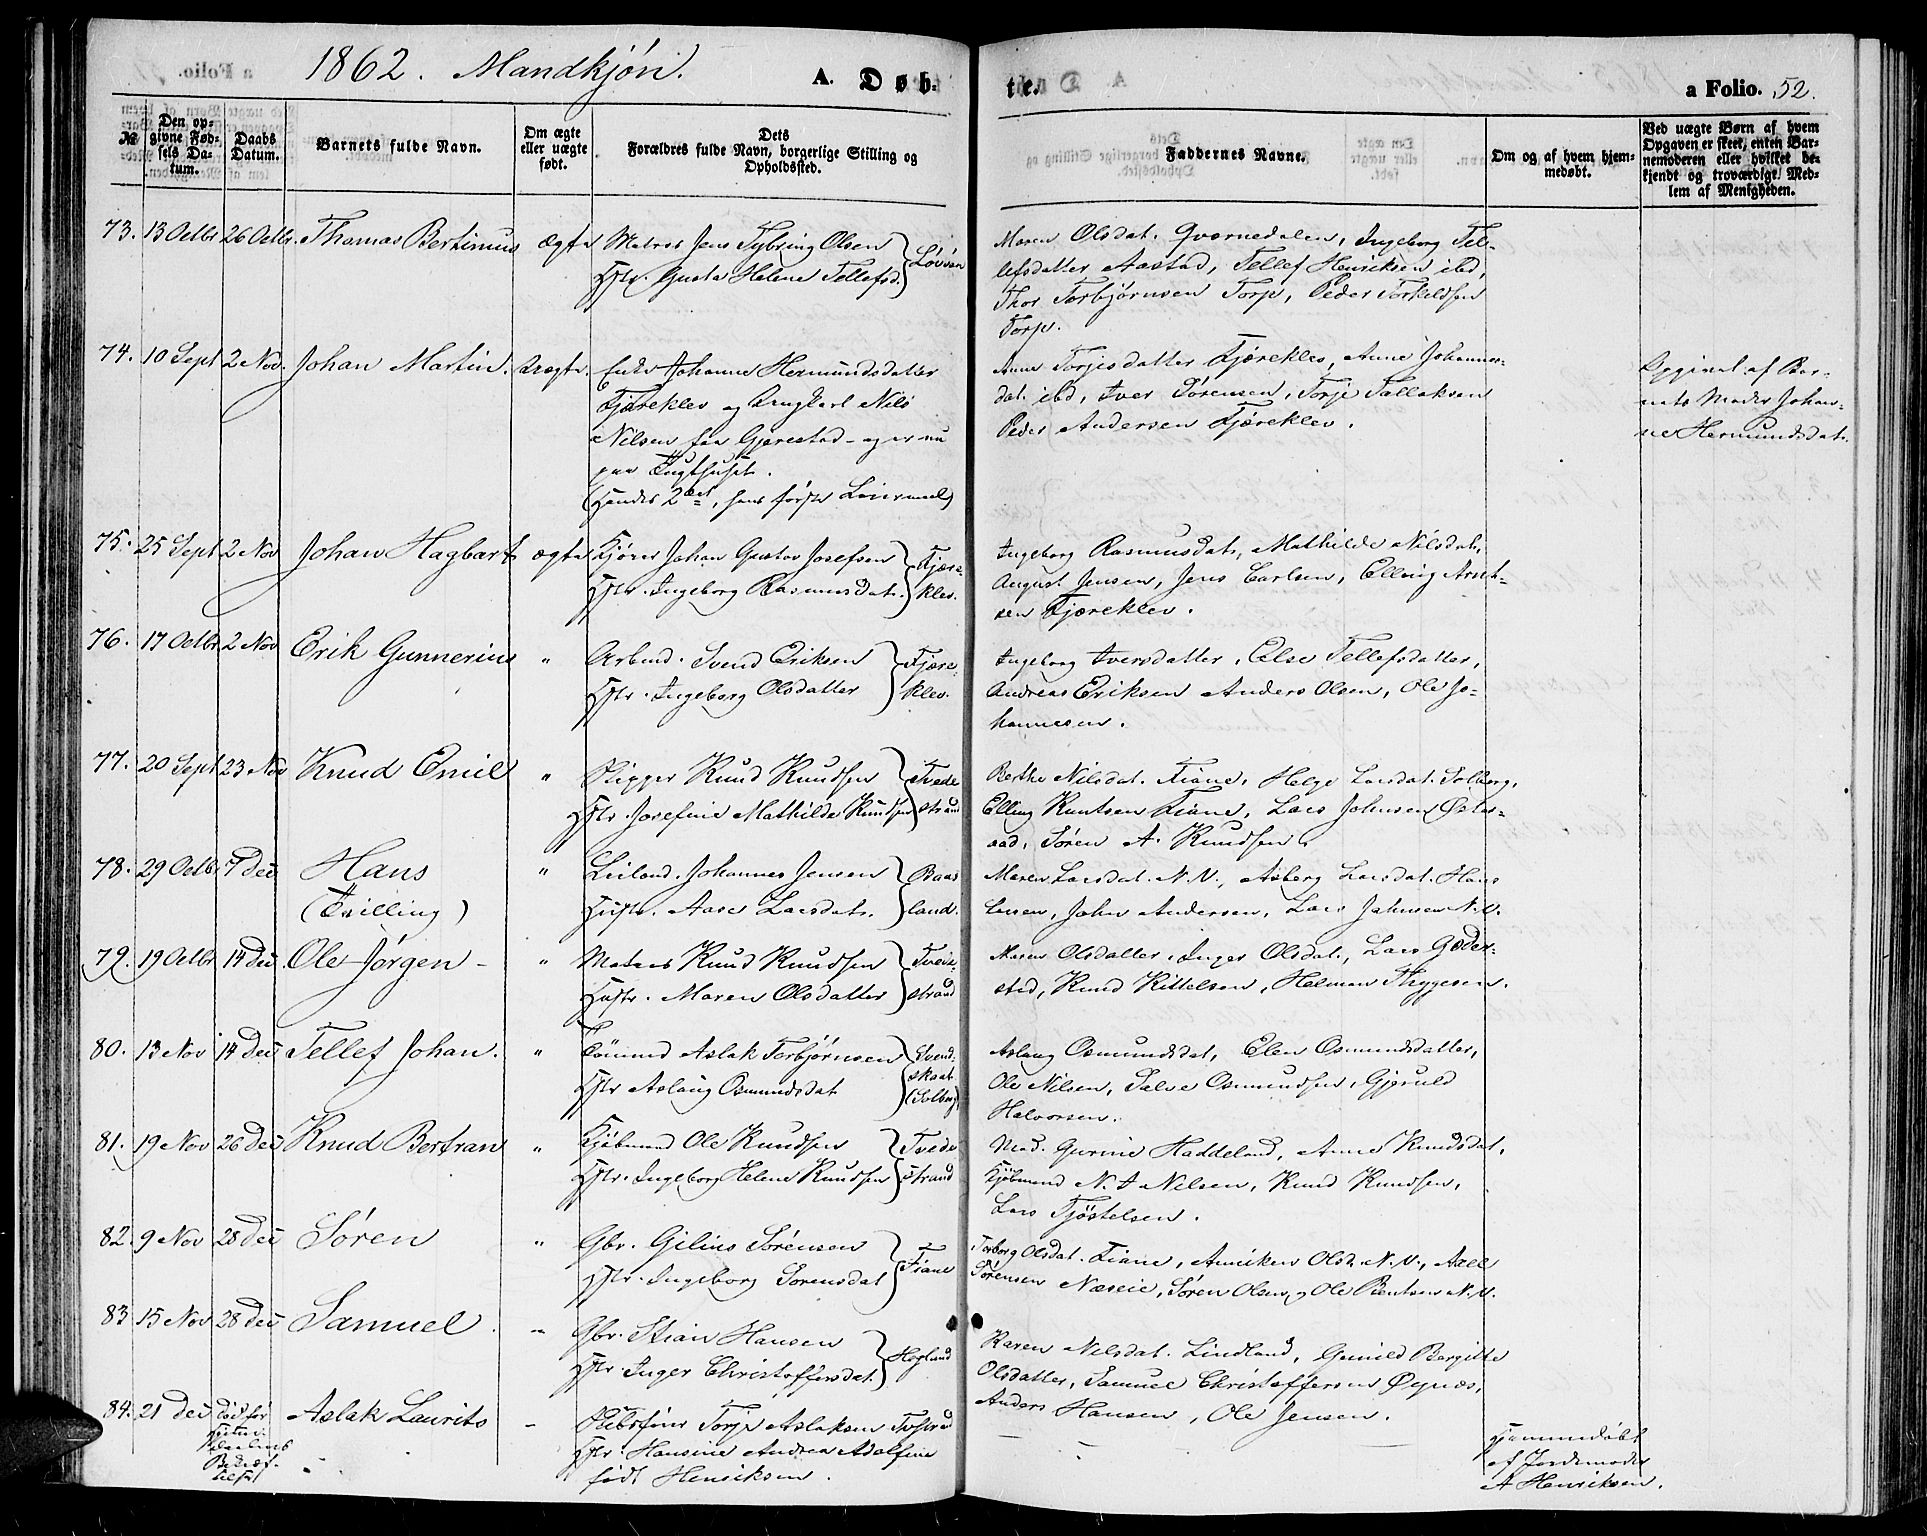 1862. Mandkjön. A. Døb-
te. a Folio. 52.
№
Den opgivne Fødsels Datum.
Daabs Datum.
Barnets fulde Navn.
Om ægte eller uægte født.
Dets Forældres fulde Navn, borgerlige Stilling og Opholdssted.
Faddernes Navne.
Om og af hvem hjemmedøbt.
Ved uægte Børn af hvem Opgaven er skeet, enten Barnemoderen eller hvilket bekjendt og troværdigt Medlem af Menigheden.
73. 13 Octbr 26 Octbr. Thomas Bertinius ægte Matros Jens Tybring Olsen
Hstr. Gusta Helene Tellefsd.
Maren Olsdat. Qvernedalen, Ingeborg Tel-
lefsdatter Aastad, Tellef Henriksen ibd,
Thor Torbjørnsen Torp, Peder Torkeldsen
Torp.
74. 10 Sept 2 Nov. Johan Martin. Uægte. Enke Johanne Hermundsdatter
Fjæreklev og Ungkarl Nils
Nilsen fra Gjerestad - og er nu
paa Tugthuset.
(Hendes 2det, hans første Leiermaal)
Anne Torjisdatter Fjæreklev, Anne Johannes-
dat. ibd, Iver Sørensen, Torje Tallaksen
Peder Andersen Fjæreklev.
Opgivet af Bar-
nets Moder Johan-
ne Hermundsdat.
75. 25 Sept 2 Nov Johan Hagbart ægte Kjører Johan Gustav Josefsen Fjære-
Hstr. Ingeborg Rasmusdat. klev.
Ingeborg Rasmusdat., Mathilde Nilsdat,
August Jensen, Jens Carlsen, Elling Arnt-
sen Fjæreklev.
76. 17 Octbr 2 Nov Erik Gunnerius " Arbmd. Svend Eriksen Fjære-
Hstr. Ingeborg Olsdatter klev.
Ingeborg Iversdatter, Else Tellefsdatter,
Andreas Eriksen Anders Olsen, Ole Jo-
hannesen.
77. 20 Sept 23 Nov Knud Emil " Skipper Knud Knudsen Tvede
Hstr. Josefine Mathilde Knudsen strand
Berthe Nilsdat. Fiane, Helge Larsdat. Solberg,
Elling Knutsen Fiane, Lars Johnsen Øster-
aad, Søren A. Knudsen
78. 29 Octbr 7 Dec Hans " Leilend. Johannes Jensen Baas
(Tvilling) Hustr. Aase Larsdat. land.
Maren Larsdat. N.N., Asberg Larsdat. Hans
Larsen, John Andersen, Lars Johnsen N.N.
79. 19 Octbr 14 Dec. Ole Jørgen - " Matros Knud Knudsen Tvede-
Hustr. Maren Olsdatter strand
Maren Olsdatter, Inger Olsdat., Lars Goder-
sted, Knud Kittelsen, Helman Thygesen.
80. 13 Nov 14 Dec Tellef Johan. " Tømmd Aslak Torbjørnsen Svend-
Hstr Aslaug Osmundsdat skaat
(Solberg)
Aslaug Osmundsdat, Elen Osmundsdatter,
Ole Nilsen, Salve Osmundsen, Gjeruld
Halvorsen.
81. 19 Nov 26 Dec Knud Bertran " Kjøbmand Ole Knudsen Tvede
Hstr. Ingeborg Helene Knudsen strand
Mad. Gurine Haddeland, Anne Knudsdat,
Kjøbmand N. A Nilsen, Knud Knudsen,
Lars Tjøstelsen.
82. 9 Nov 28 Dec Søren " Gbr. Gilius Sørensen
Hstr. Ingeborg Sorensdat Fiane
Torborg Olsdat. Fiane, Anniken Olsd. N.N., Axel
Sørensen Næseie, Søren Olsen, Ole Bentsen N.N.
83 15 Nov 28 Dec Samuel. " Gbr. Stian Hansen
Hstr. Inger Christoffersdat. Hogland
Karen Nilsdat. Lindland, Gunild Bergitte
Olsdatter, Samuel Christoffersen Øynæs,
Anders Hansen, Ole Jensen.
84. 21 Dec Død før Aslak Laurits - Skibsfører Torje Aslaksen Tvstrand
Hstr. Hansine Andrea Adolfine
født Henriksen.
Hjemmedøbt
af Jordemoder
A Henriksen.